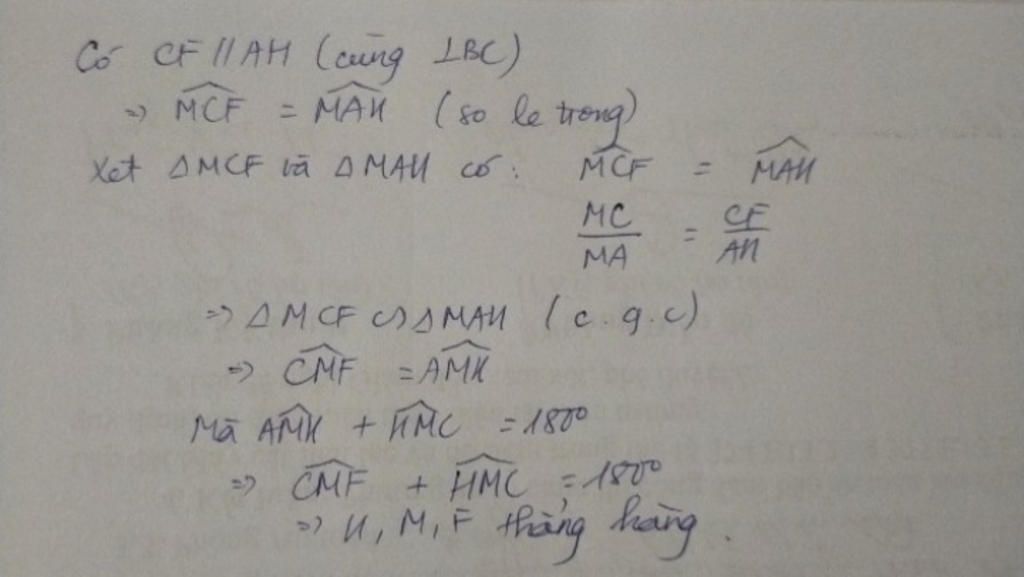 Có CF // AH (cùng ⊥BC)
=> \widehat{MCF} = \widehat{MAH} (so le trong)
Xét △MCF và △MAH có: \widehat{MCF} = \widehat{MAH}
\frac{MC}{MA} = \frac{CF}{AH}
=> △MCF ∽ △MAH (c g.c)
=> \widehat{CMF} = \widehat{AMH}
Mà \widehat{AMH} + \widehat{HMC} = 180°
=> \widehat{CMF} + \widehat{HMC} = 180°
=> H, M, F thẳng hàng.